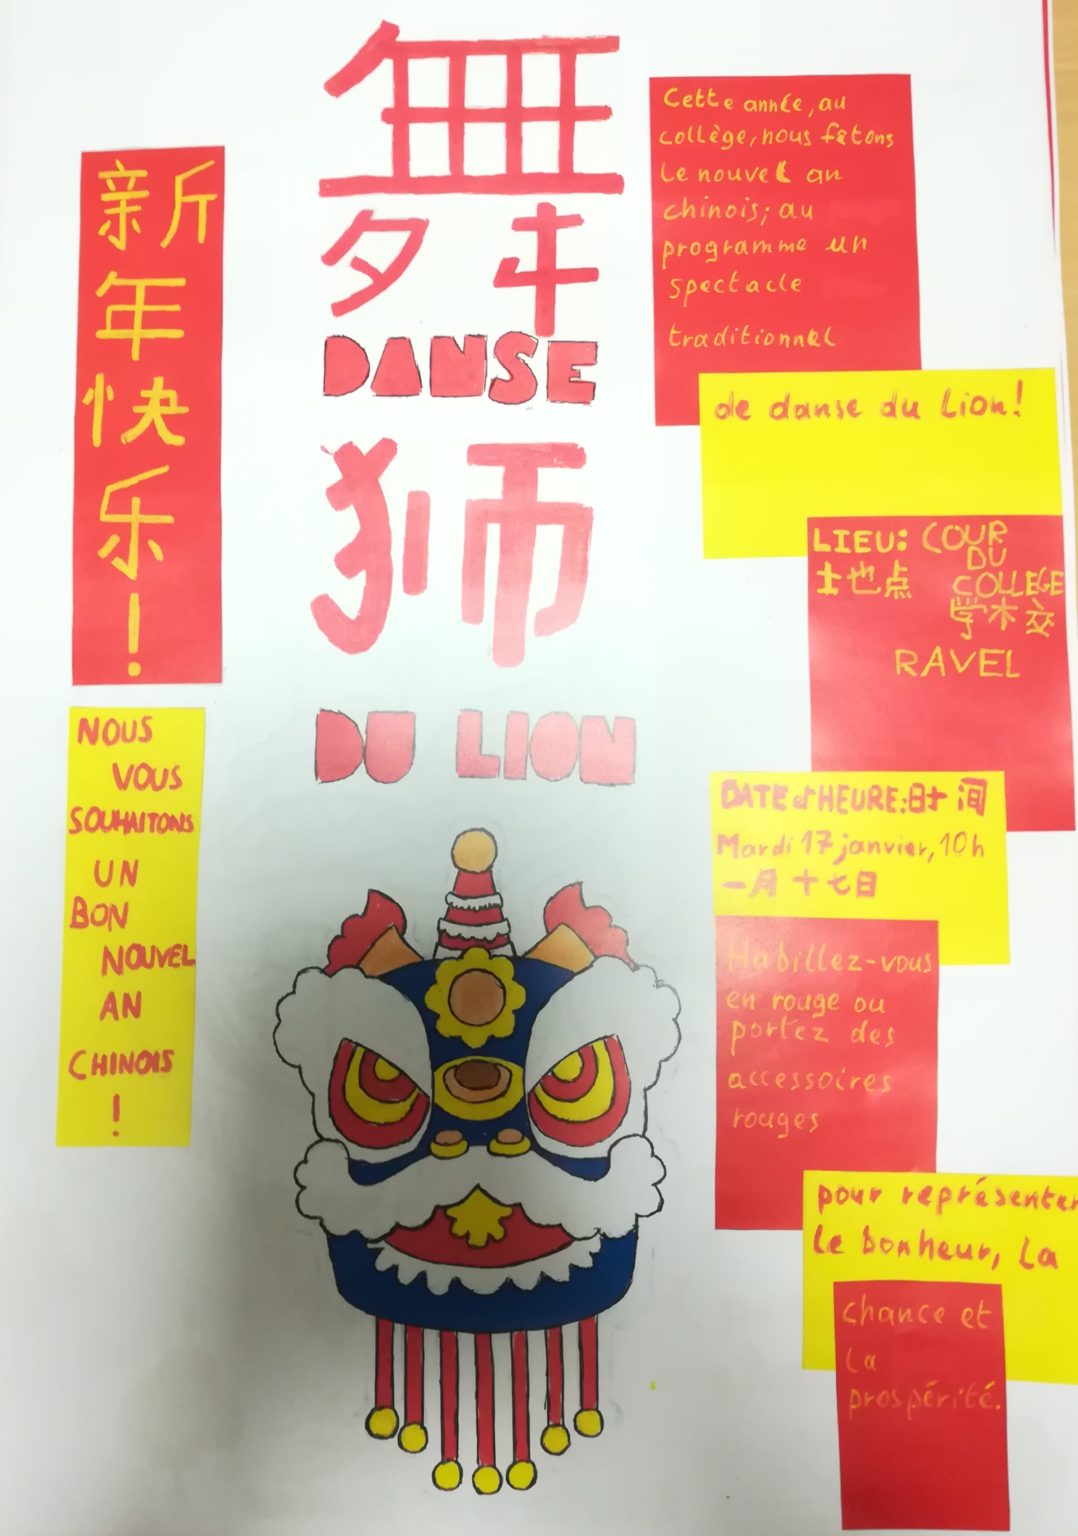 新
年
快
乐
!
NOUS
VOUS
SOUHAITONS
UN
BON
NOUVEL
AN
CHINOIS
!
舞
DANSE
狮
DU LION
Cette année, au
collège, nous fêtons
le nouvel an
chinois; au
programme un
spectacle
traditionnel
de danse du Lion!
LIEU: COUR
DU
地点 COLLEGE
学校
RAVEL
DATE et HEURE: 时间
Mardi 17 janvier, 10h
一月十七日
Habillez-vous
en rouge ou
portez des
accessoires
rouges
pour représenter
le bonheur, la
chance et
la
prospérité.